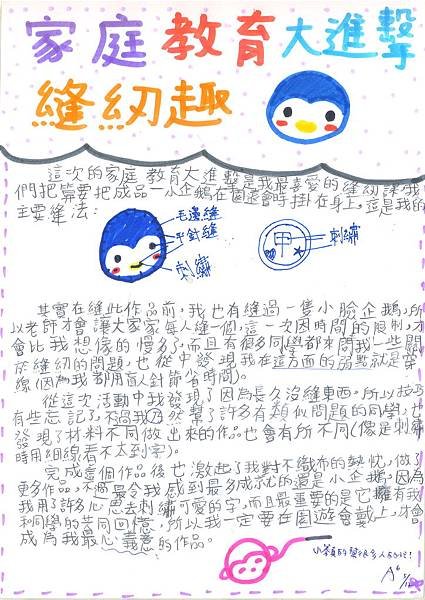 家庭教育大進擊
縫紉趣
這次的家庭教育大進擊是我最喜愛的縫紉課,我
們把需要把成品—小企鵝在園遊會時掛在身上,這是我的
主要縫法:
毛邊縫
平針縫
刺繡
甲
刺繡
其實在縫此作品前,我也有縫過一隻小臉企鵝,所
以老師才會讓大家家每人縫一個,這一次因時間的限制,才
會比我想像的慢多了,而且有很多同學都來問我一些關
於縫紉的問題,也從中發現我在這方面的弱點就是穿
線(因為我都用盲人針節省時間)。
從這次活動中我發現了因為長久沒縫東西。所以技巧
有些忘記了,不過我乃然幫了許多有類似問題的同學,也
發現了材料不同做出來的作品也會有所不同(像是刺繡
時用粗線看不太到字)。
完成這個作品後也激起了我對不織布的熱忱,做了
更多作品,不過最令我感到最多成就的還是小企鵝,因為
我用了許多心思去刺繡可愛的字,而且最重要的是它擁有我
和同學的共同回憶,所以我一定要在園遊會戴上,才會
成為我最心義意的作品。
A⁺